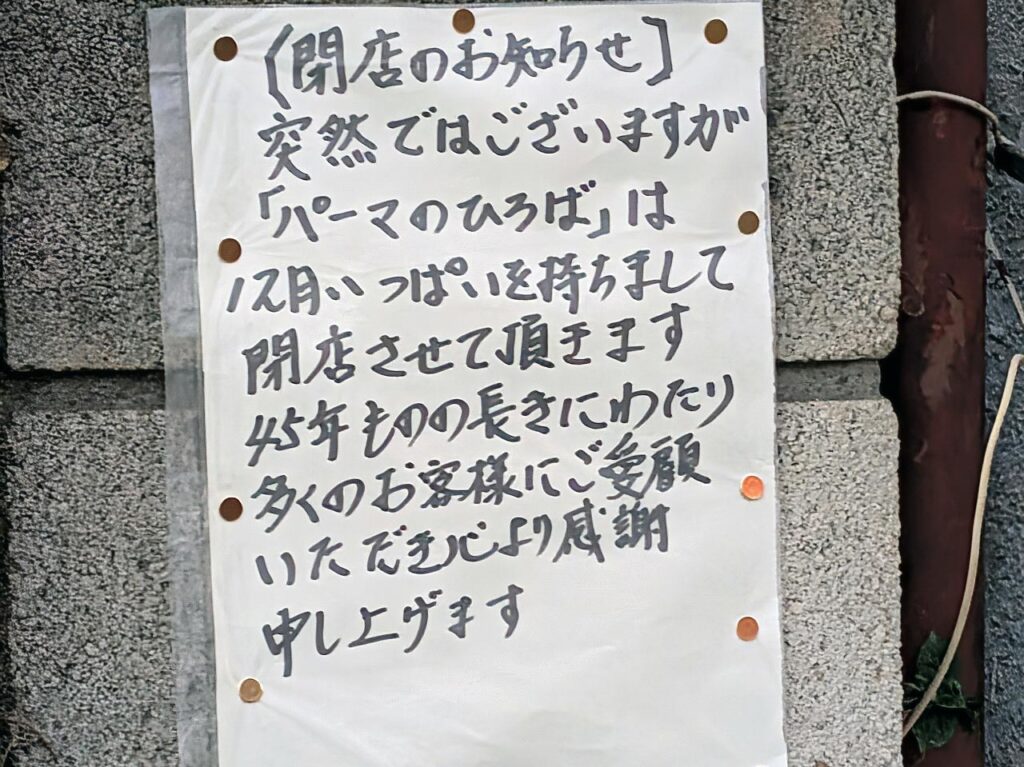 〔閉店のお知らせ〕
突然ではございますが
「パーマのひろば」は
12月いっぱいを持ちまして
閉店させて頂きます
45年もの長きにわたり
多くのお客様にご愛顧
いただき心より感謝
申し上げます